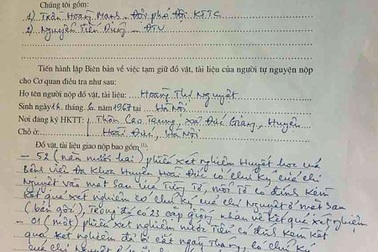 Chúng tôi gồm:
1) Trần Hoàng Mans - Đội phó Đội KTTC
2) Nguyễn Tiến Dũng - ĐTV
Tiến hành lập Biên bản về việc tạm giữ đồ vật, tài liệu của người tự nguyện nộp
cho Cơ quan điều tra như sau:
Họ tên người nộp đồ vật, tài liệu: Hoàng Thị Nguyệt
Sinh ngày 16 tháng 6 năm 1968 tại Hà Nội
Nơi đăng ký HKTT: Thôn Cao Trung, Xã Đức Giang, Huyện
Chỗ ở: Hoài Đức, Hà Nội
Đồ vật, tài liệu giao nộp bao gồm
- 52 (năm mươi hai) phiếu xét nghiệm Huyết học của
Bệnh viện Đa Khoa Huyện Hoài Đức có chữ ký của chị
Nguyệt vào mặt sau của từng tờ, mỗi tờ có đính kèm
kết quả xét nghiệm có chữ ký của chị Nguyệt ở mặt sau
(bản gốc), trong đó có 23 cặp được nhân về kết quả xét nghiệm
- 01 (một) phiếu xét nghiệm nước tiểu có đính kèm
quả xét nghiệm đã bị cắt ngày tháng, có chữ ký